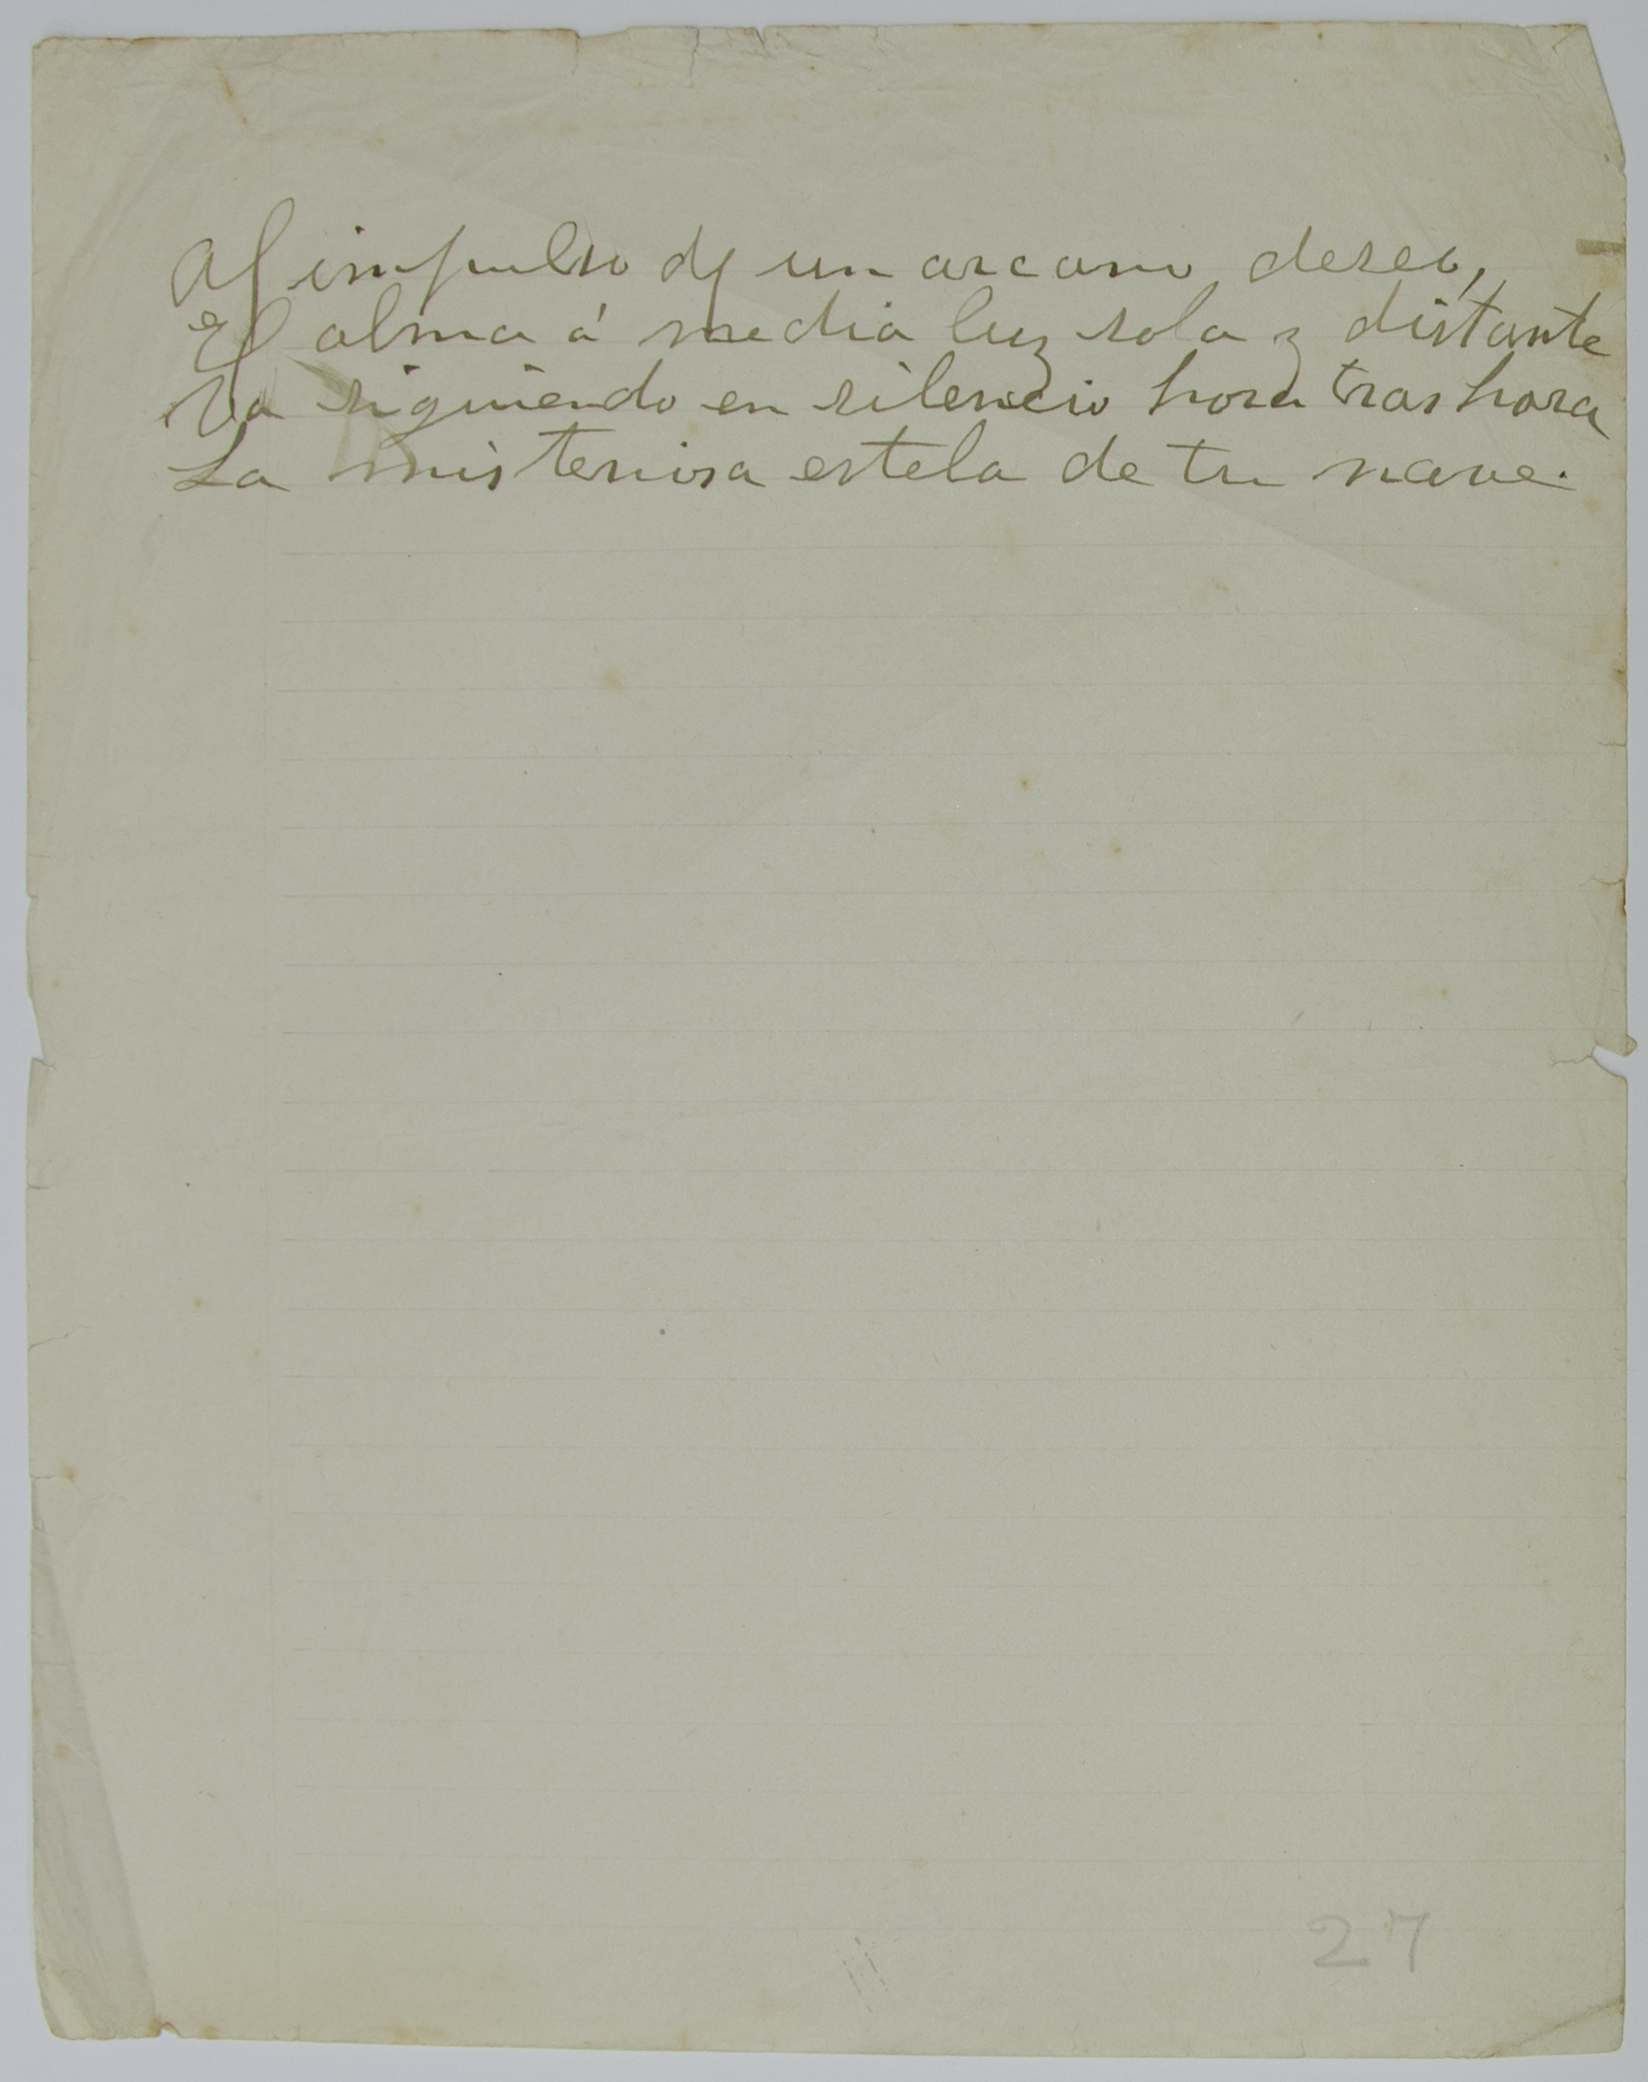 Al impulso de un arcano deseo,
El alma á media luz sola y distante
Va siguiendo en silencio hora tras hora
La misteriosa estela de tu nave.
27